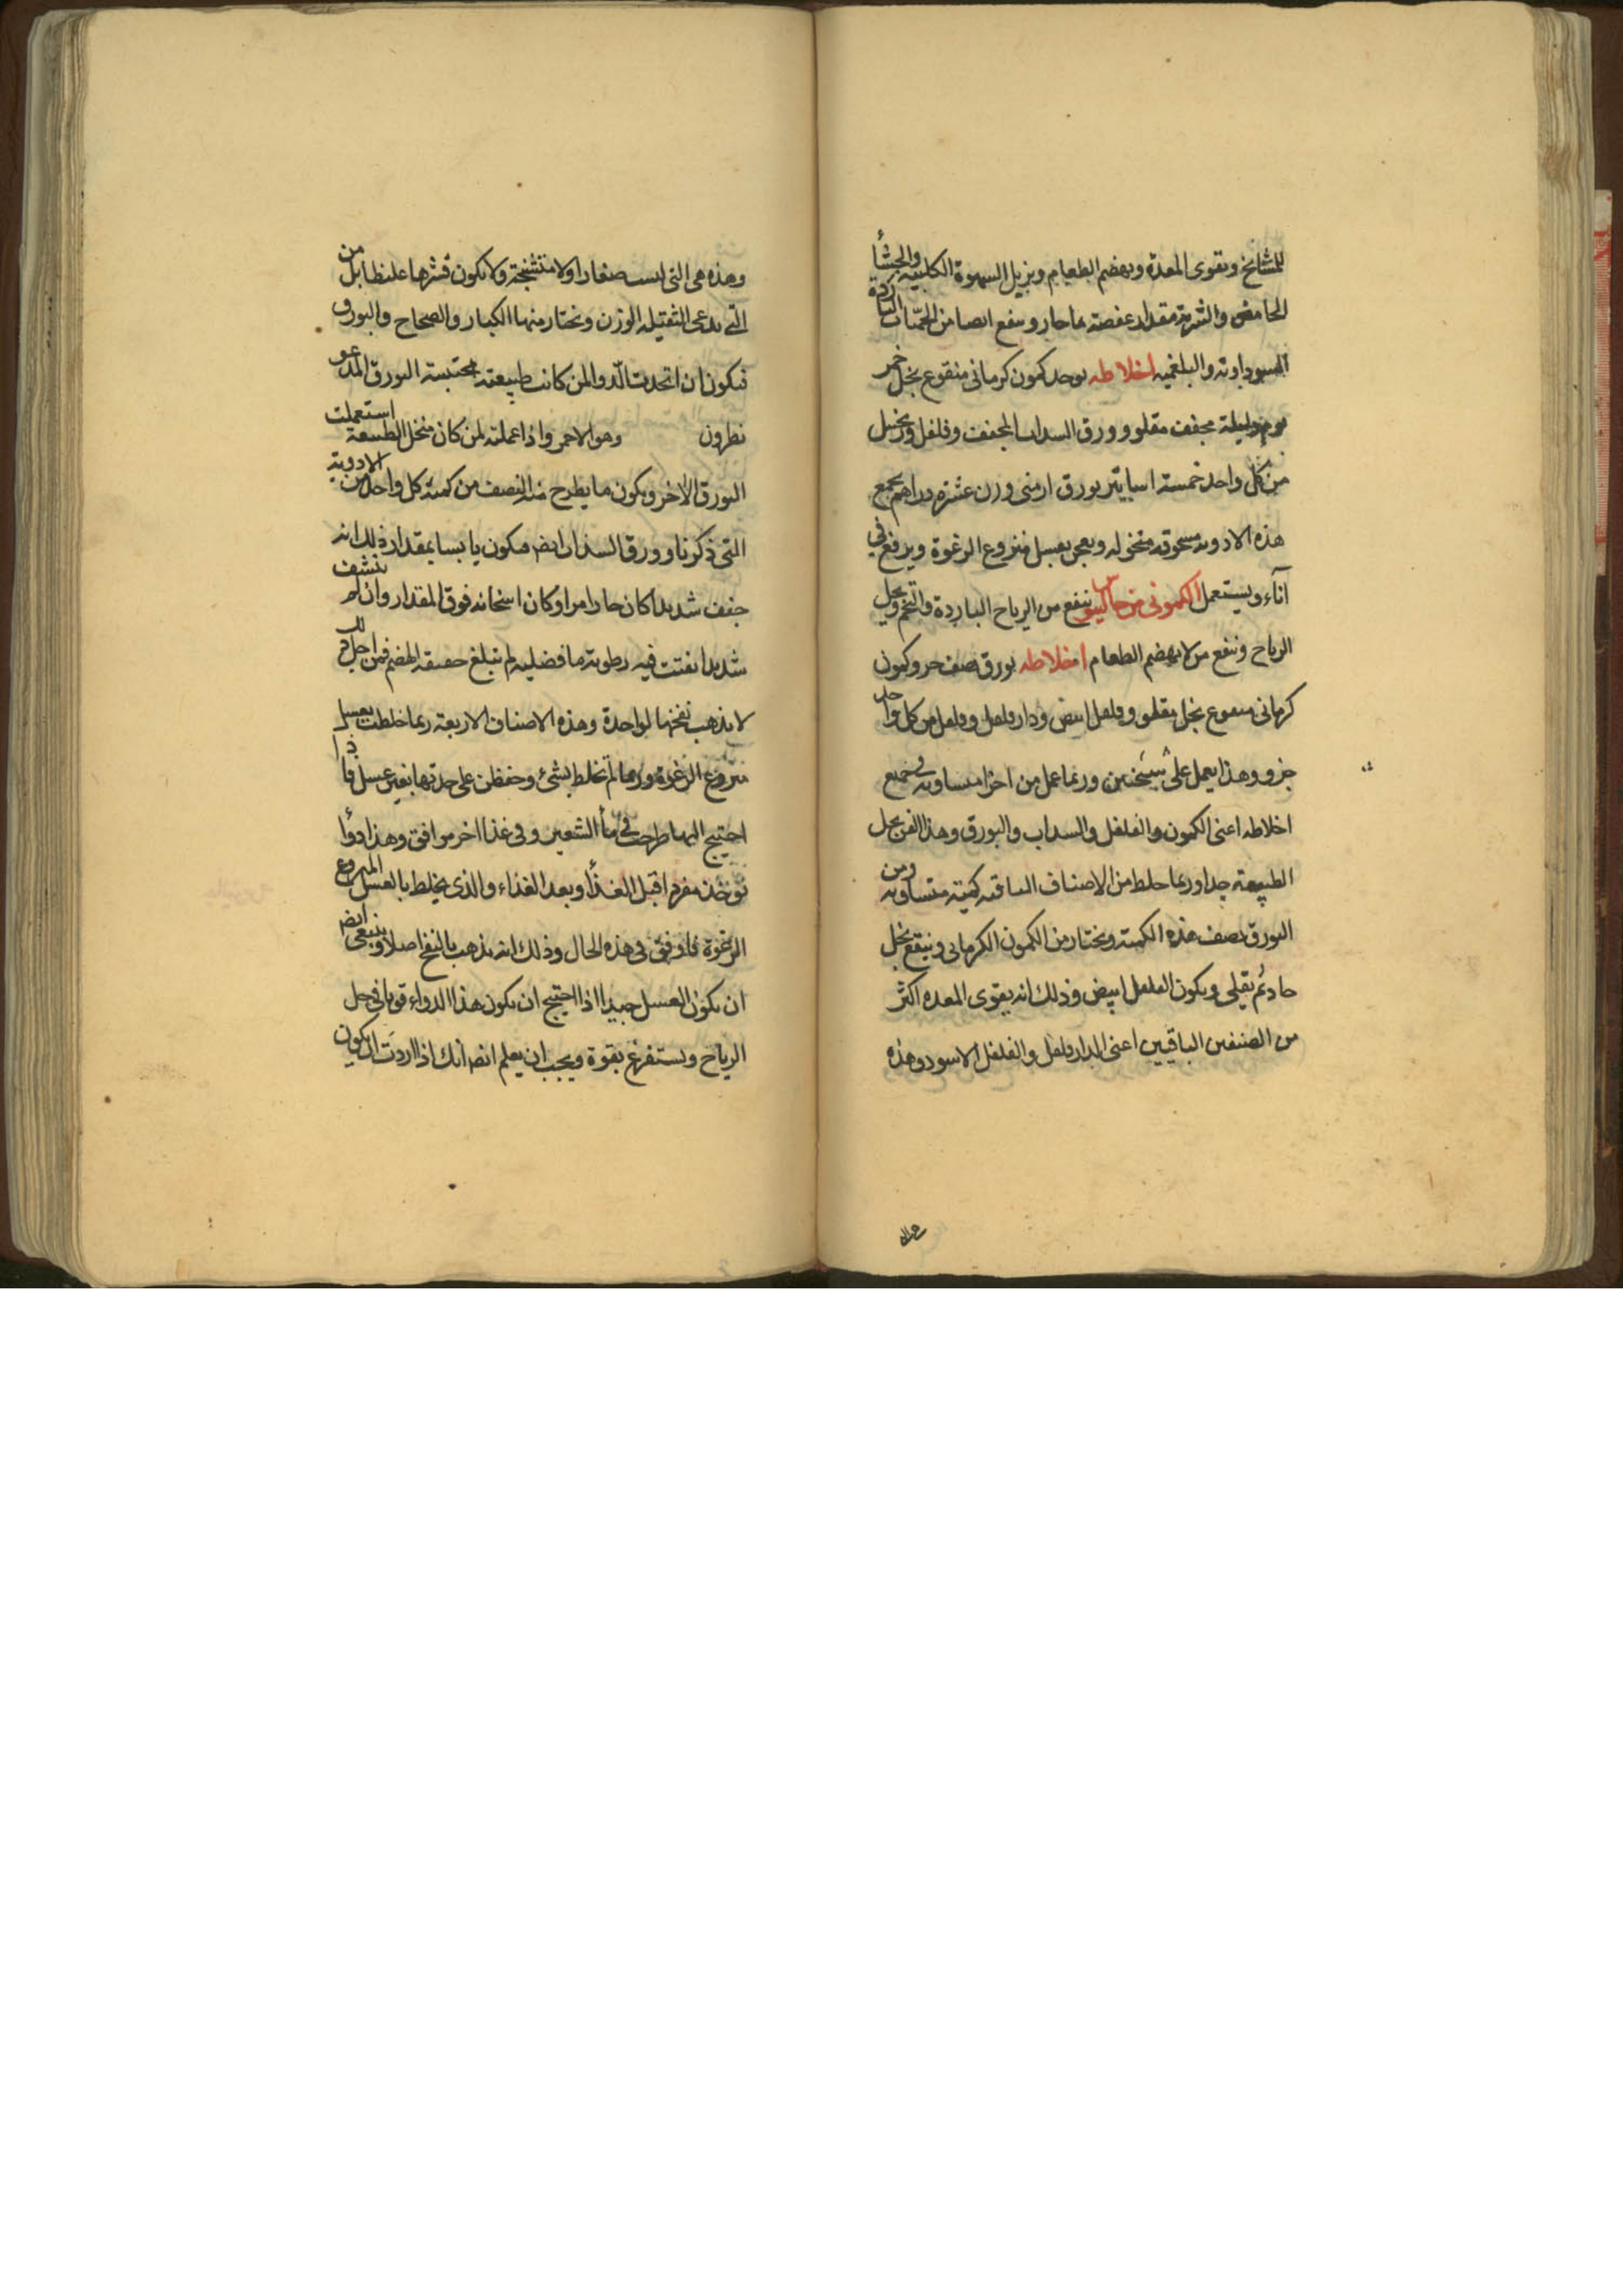 للمشايخ ويقوى المعدة ويهضم الطعام ويزيل الشهوة الكلبية والجشأ
الحامض والشربة مقدار عفصة بماء حار وينفع ايضا من الحميات الباردة
السوداوية والبلغمية اخلاطه يوخذ كمون كرمانى منقوع بخل خمر
يوم وليلة مجفف مقلو وورق السداب المجفف وفلفل وزنجبيل
من كل واحد خمسة اساتير بورق ارمنى وزن عشرة دراهم يجمع
هذه الادوية مسحوقة منخوله ويعجن بعسل منزوع الرغوة ويرفع في
آناء ويستعمل الكمونى من جالينوس ينفع من الرياح الباردة والتخم ويحل
الرياح وينفع من لا يهضم الطعام اخلاطه بورق نصف جزو كمون
كرمانى منقوع بخل مقلو وفلفل ابيض ودارفلفل وفلفل من كل واحد
جزو وهذا يعمل على شيئين وربما عمل من اجزا متساوية في جميع
اخلاطه اعنى الكمون والفلفل والسداب والبورق وهذا الفن يحل
الطبيعة جدا وربما خلط من الاصناف الباقية كمية متساوية ومن
البورق نصف هذه الكمية ويختار من الكمون الكرمانى وينقع بخل
حاد ثم يقلى ويكون الفلفل ابيض وذلك انه يقوى المعده اكثر
من الصنفين الباقيين اعنى الدارفلفل والفلفل الاسود وهذه
وهذه هى التى ليست صغارا ولا متشنجة ولا يكون قشرها غليظا بل من
التى تدعى الثقيلة الوزن ونختار منها الكبار والصحاح والبورق
فيكون ان اتخذت الدوا لمن كانت طبيعته محتبسة البورق المدعو
نطرون وهو الاحمر واذا عملته لمن كان منحل الطبيعة استعملت
البورق الاخر ويكون ما يطرح منه النصف من كمية كل واحد من الادوية
التى ذكرنا وورق السذاب ايضا فيكون يابسا بمقدار ذلك انه
جفف شديدا كان حارا مرا وكان اسخانه فوق المقدار وان لم ينشف
شديدا بقيت فيه رطوبة ما فضليه لم تبلغ حقيقة الهضم فمن اجل ذلك
لا يذهب نفخها لواحدة وهذه الاصناف الاربعة ربما خلطت بعسل
منزوع الرغوة وربما لم تخلط بشئ وحفظن على حدتها بغير عسل فاذا
احتيج اليها طرحت فى مأ الشعير وفى غذا اخر موافق وهذا دوأ
يوخذ مفردا قبل الغذأ وبعد الغذاء والذى يخلط بالعسل المنزوع
الرغوة فاوفق فى هذه الحال وذلك انه يذهب بالنفخ اصلا وينبغى ايضا
ان يكون العسل جيدا اذا احتيج ان يكون هذا الدواء قويا فى حل
الرياح ويستفرغ بقوة ويجب ان يعلم ايضا انك اذا اردت ان يكون